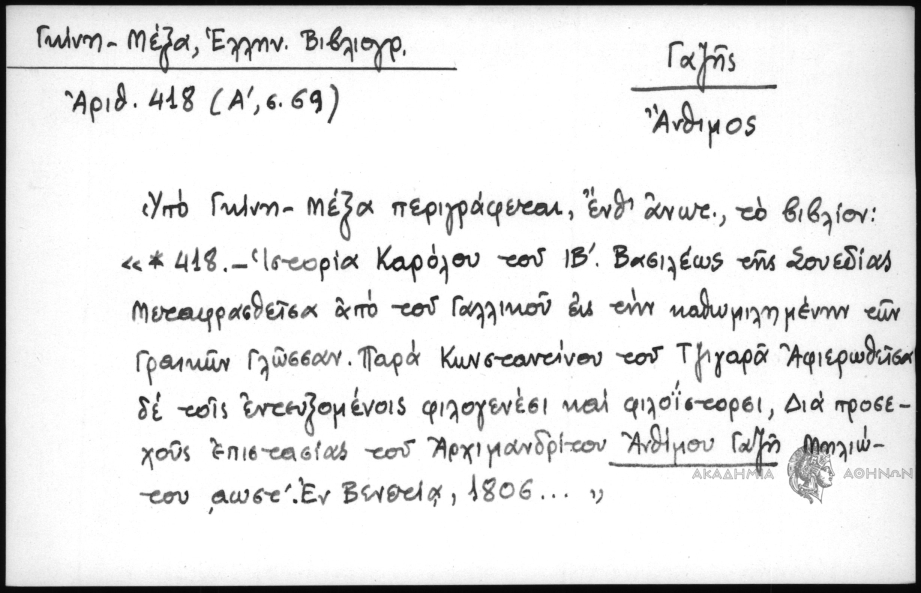 Γκίνη - Μέζα, Ἑλλην. Βιβλιογρ.
Ἀριθ. 418 (Α', σ. 69)
Γαζῆς
Ἄνθιμος
Ὑπό Γκίνη - Μέζα περιγράφεται, ἔνθ' ἀνωτ., τό βιβλίον:
«* 418. - Ἱστορία Καρόλου τοῦ ΙΒ'. Βασιλέως τῆς Σουεδίας
Μεταφρασθεῖσα ἀπό τοῦ Γαλλικοῦ εἰς τήν καθωμιλημένην τῶν
Γραικῶν Γλῶσσαν. Παρά Κωνσταντίνου τοῦ Τζιγαρᾶ Ἀφιερωθεῖσα
δέ τοῖς ἐντευξομένοις φιλογενέσι καί φιλοΐστορσι, Διά προσε-
χοῦς ἐπιστασίας τοῦ Ἀρχιμανδρίτου Ἀνθίμου Γαζῆ Μηλιώ-
του ͵αωστ'. Ἐν Βενετίᾳ, 1806... »
ΑΚΑΔΗΜΙΑ ΑΘΗΝΩΝ